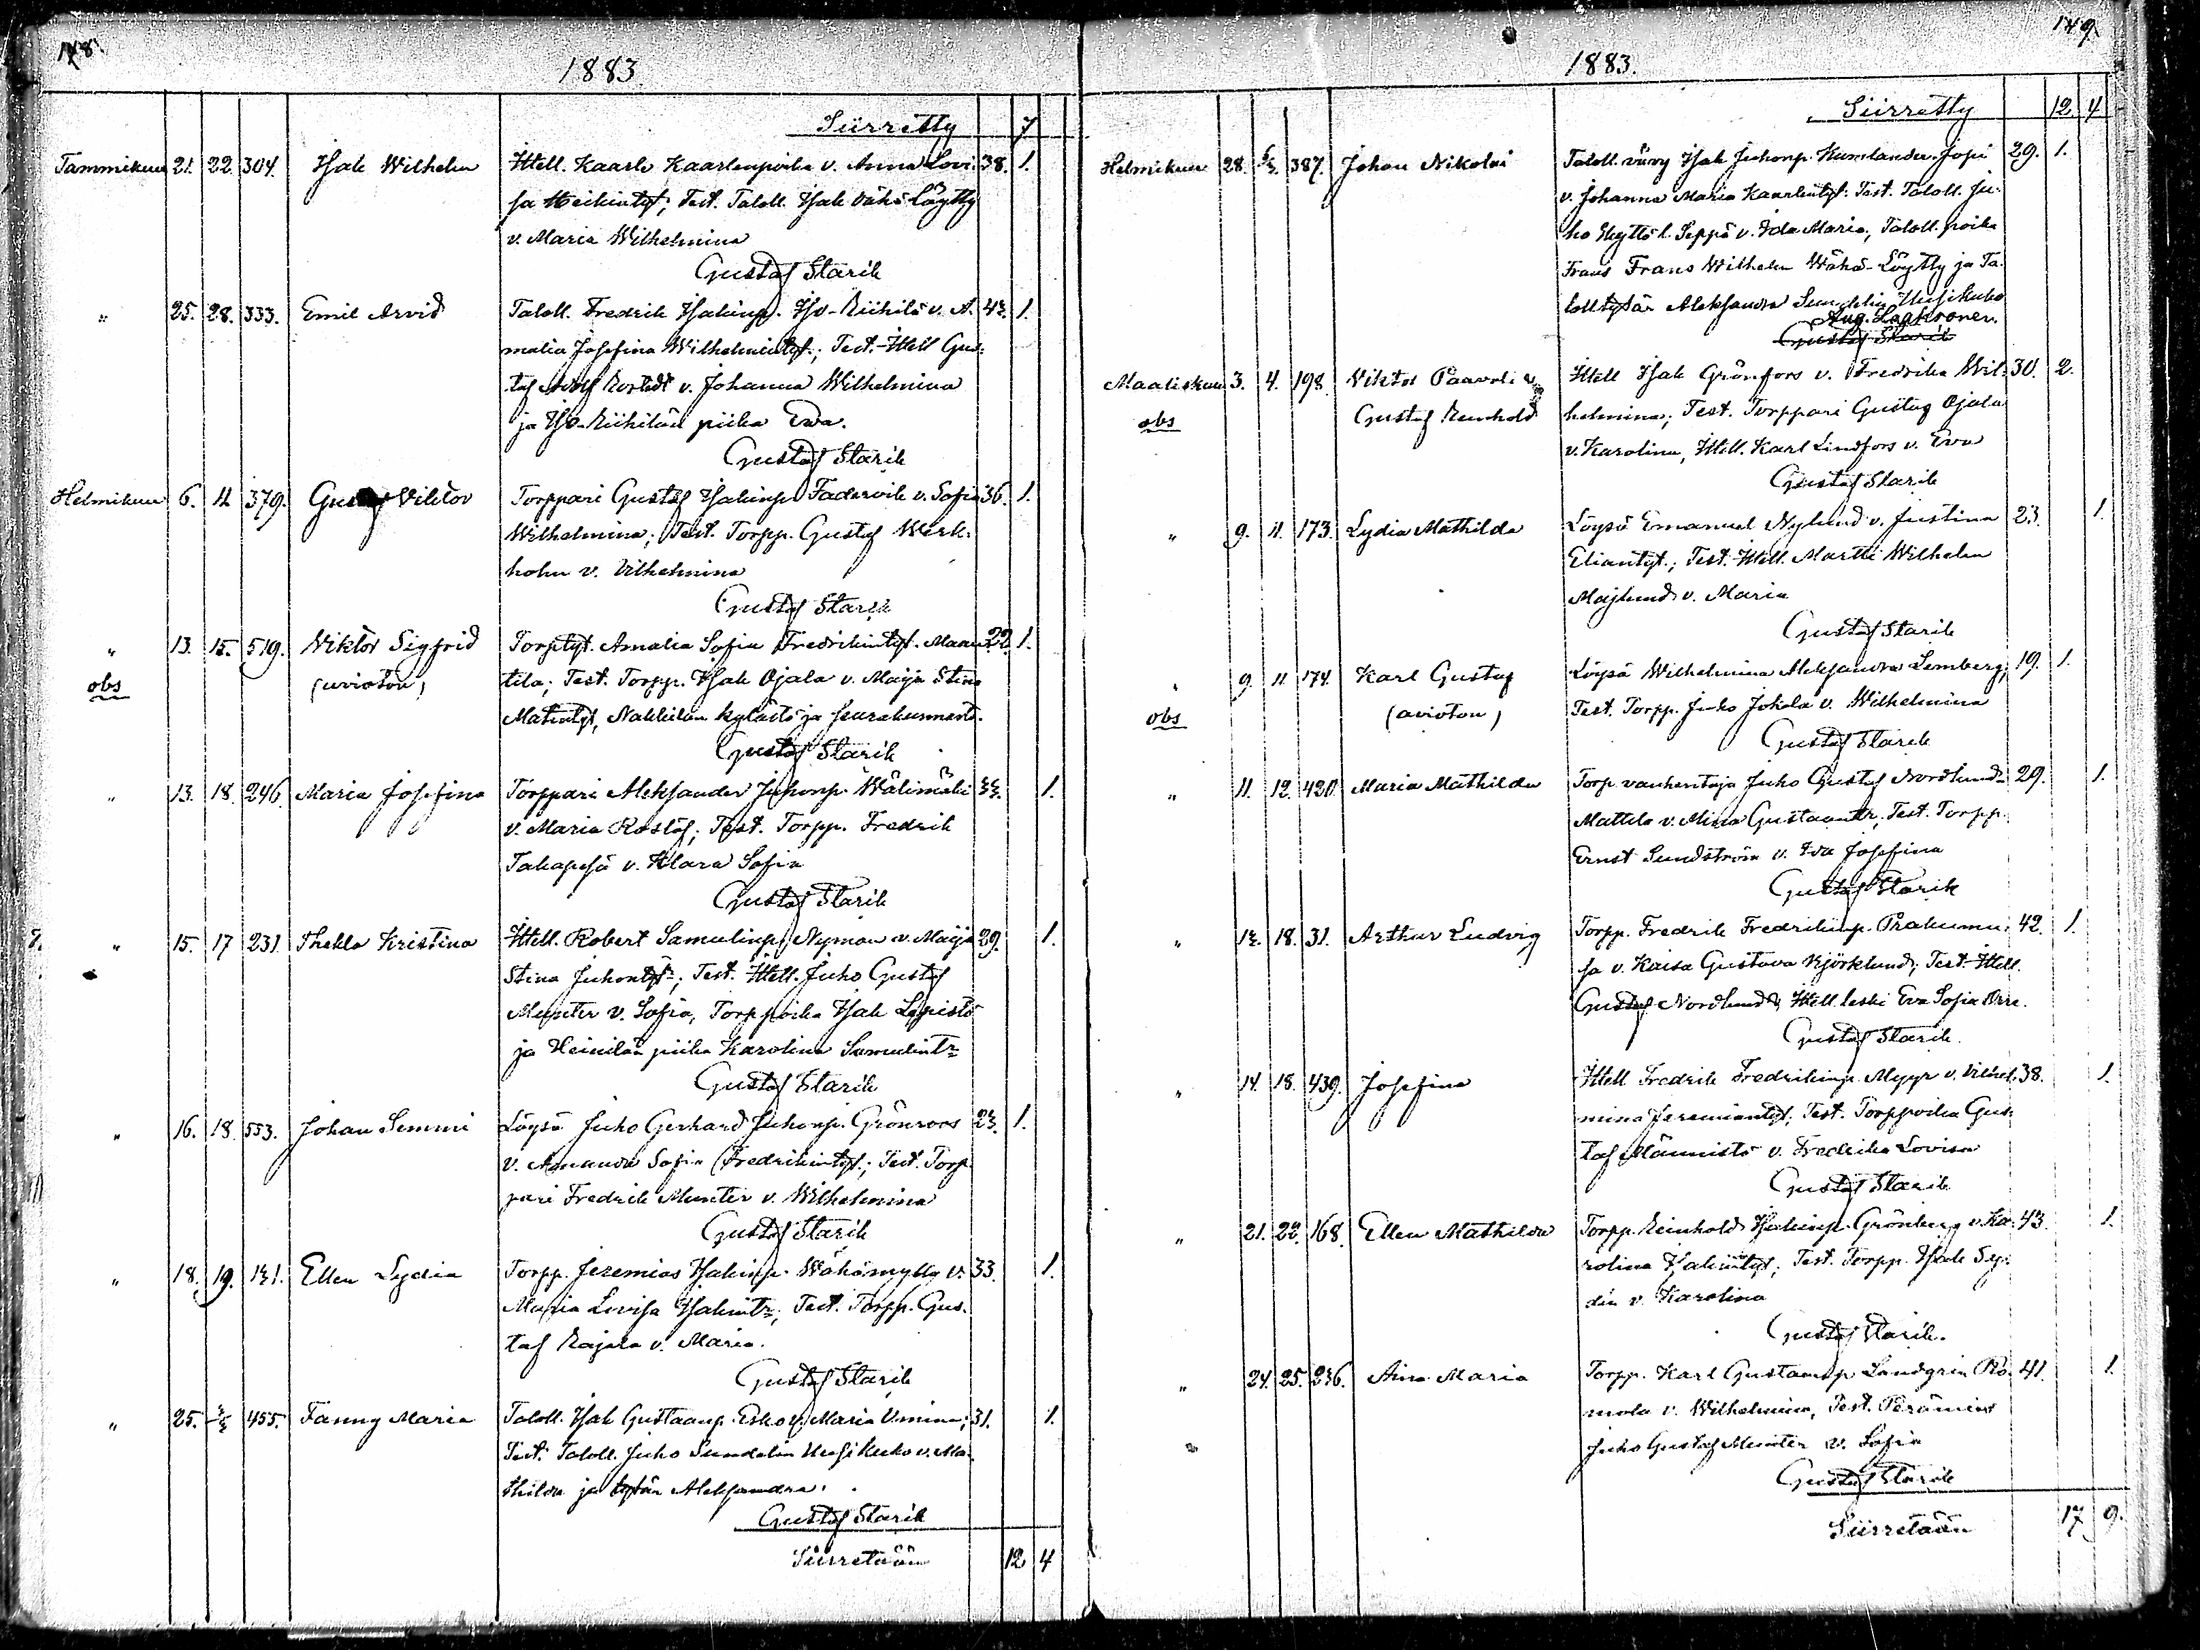 148.
1883
Siirretty 7
Tammikuu 21. 22. 304. Isak Wilhelm Ittell. Kaarle Kaarlenpoika v. Anna Lovi- 38. 1.
sa Heikintyt; Test. Taloll. Isak Vähä Löytty
v. Maria Wilhelmina
Gustaf Starik
" 25. 28. 333. Emil Arvid Taloll. Fredrik Isakinp. Iso-Riihilä v. A- 42. 1.
malia Josefina Wilhelmintyt.; Test. Ittell Gus-
taf Adolf v. Johanna Wilhelmina
ja Iso-Riihilän piika Ewa.
Gustaf Starik
Helmikuu 6. 11 379. Gustaf Viktor Torppari Gustaf Isakinp. Fadervik v. Sofia 36. 1.
Wilhelmina; Test. Torpp. Gustaf Werk-
holm v. Vilhelmina
Gustaf Starik
" 13. 15. 519. Viktor Sigfrid Torp.tyt. Amalia Sofia Fredrikintyt. Maan- 22. 1.
obs (avioton) tila; Test. Torpp. Isak Ojala v. Maija Stina
Matintyt, Nakkilan kylästä ja seurakunnasta.
Gustaf Starik
" 13. 18. 246. Maria Josefina Torppari Aleksander Juhonp. Wälimäki 1.
v. Maria Rostof; Test. Torpp. Fredrik
Takapesä v. Klara Sofia
Gustaf Starik
" 15. 17 231. Thekla Kristina Ittell. Robert Samulinp. Nyman v. Maija 29. 1.
Stina Juhontyt; Test. Ittell. Juho Gustaf
Munter v. Sofia, Torp.poika Isak Lepistö
ja Heinilän piika Karolina Samulintr
Gustaf Starik
" 16. 18. 553. Johan Semmi Löysä Juho Gerhard Juhonp. Grönroos 1.
v. Amanda Sofia Fredrikintyt.; Test. Torp-
pari Fredrik Munter v. Wilhelmina
Gustaf Starik
" 18. 19. Ellen Lydia Torpp. Jeremias Isakinp. Wähämylly v. 33. 1.
Maria Lovisa Isakintr; Test. Torpp. Gus-
taf Rajala v. Maria.
Gustaf Starik
" 25. 455. Fanny Maria Taloll. Isak Gustaanp. Esko v. Maria V.mina; 31. 1.
Test. Taloll. Juho Sundelin Uusikuko v. Ma-
thilda ja tytär Aleksandra.
Gustaf Starik
Siirretään 12 4
149.
1883.
Siirretty 12. 4
Helmikuu 28. 387. Johan Nikolai Taloll. vävy Isak Juhonp. Kumlander Jopi 29. 1.
v. Johanna Maria Kaarlentyt. Test. Taloll. Ju-
ho Skyttä l. Seppä v. Ida Maria, Taloll. poika
Frans Frans Wilhelm Wähä-Löytty ja Ta-
loll tytär Aleksandra Sundelin Uusikuko
Aug. Lagkronen.
Gustaf Starik
Maaliskuu 3. 4. 198 Viktor Paavali Ittell Isak Grönfors v. Fredrika Wil- 30. 2.
obs Gustaf Reinhold helmina; Test. Torppari Gustaf Ojala
v. Karolina, Ittell. Karl Lindfors v. Eva
Gustaf Starik
" 9. 11. 173. Lydia Mathilda Löysä Emanuel Nylund v. Justina 23. 1.
Eliantyt.; Test. Ittell. Martti Wilhelm
Majlund v. Maria
Gustaf Starik
" 9. 11 174. Karl Gustaf Löysä Wilhelmina Aleksandra Lemberg; 19. 1.
obs (avioton) Test. Torpp. Juho Jokela v. Wilhelmina
Gustaf Starik
" 11. 12. 420. Maria Mathilda Torp. vanhentaja Juho Gustaf Nordlund 29. 1.
Mattila v. Miina Gustaantr, Test. Torpp.
Ernst Sundström v. Eva Josefina
Gustaf Starik
" 18. 31. Arthur Ludvig Torpp. Fredrik Fredrikinp. 42. 1.
v. Kaisa Gustava Björklund; Test. Ittell.
Gustaf Nordlund, Ittell. leski Eva Sofia
Gustaf Starik.
" 14. 18. 439. Josefina Ittell Fredrik Fredrikinp. Myyr v. Vilhel- 38. 1.
mina Jeremiantyt; Test. Torppoika Gus-
taf Männistö v. Fredrika Lovisa
Gustaf Starik
" 21. 22. 168. Ellen Mathilda Torpp. Reinhold Isakinp. Grönberg v. Ka- 43. 1.
rolina Isakintyt; Test. Torpp. Isak Sy-
din v. Karolina
Gustaf Starik.
" 24. 25. 236. Aina Maria Torpp. Karl Gustaanp. Landgrin Ro- 41. 1.
mola v. Wilhelmina, Test. Perämies
Juho Gustaf Munter v. Sofia
Gustaf Starik
Siirretään 17 9.